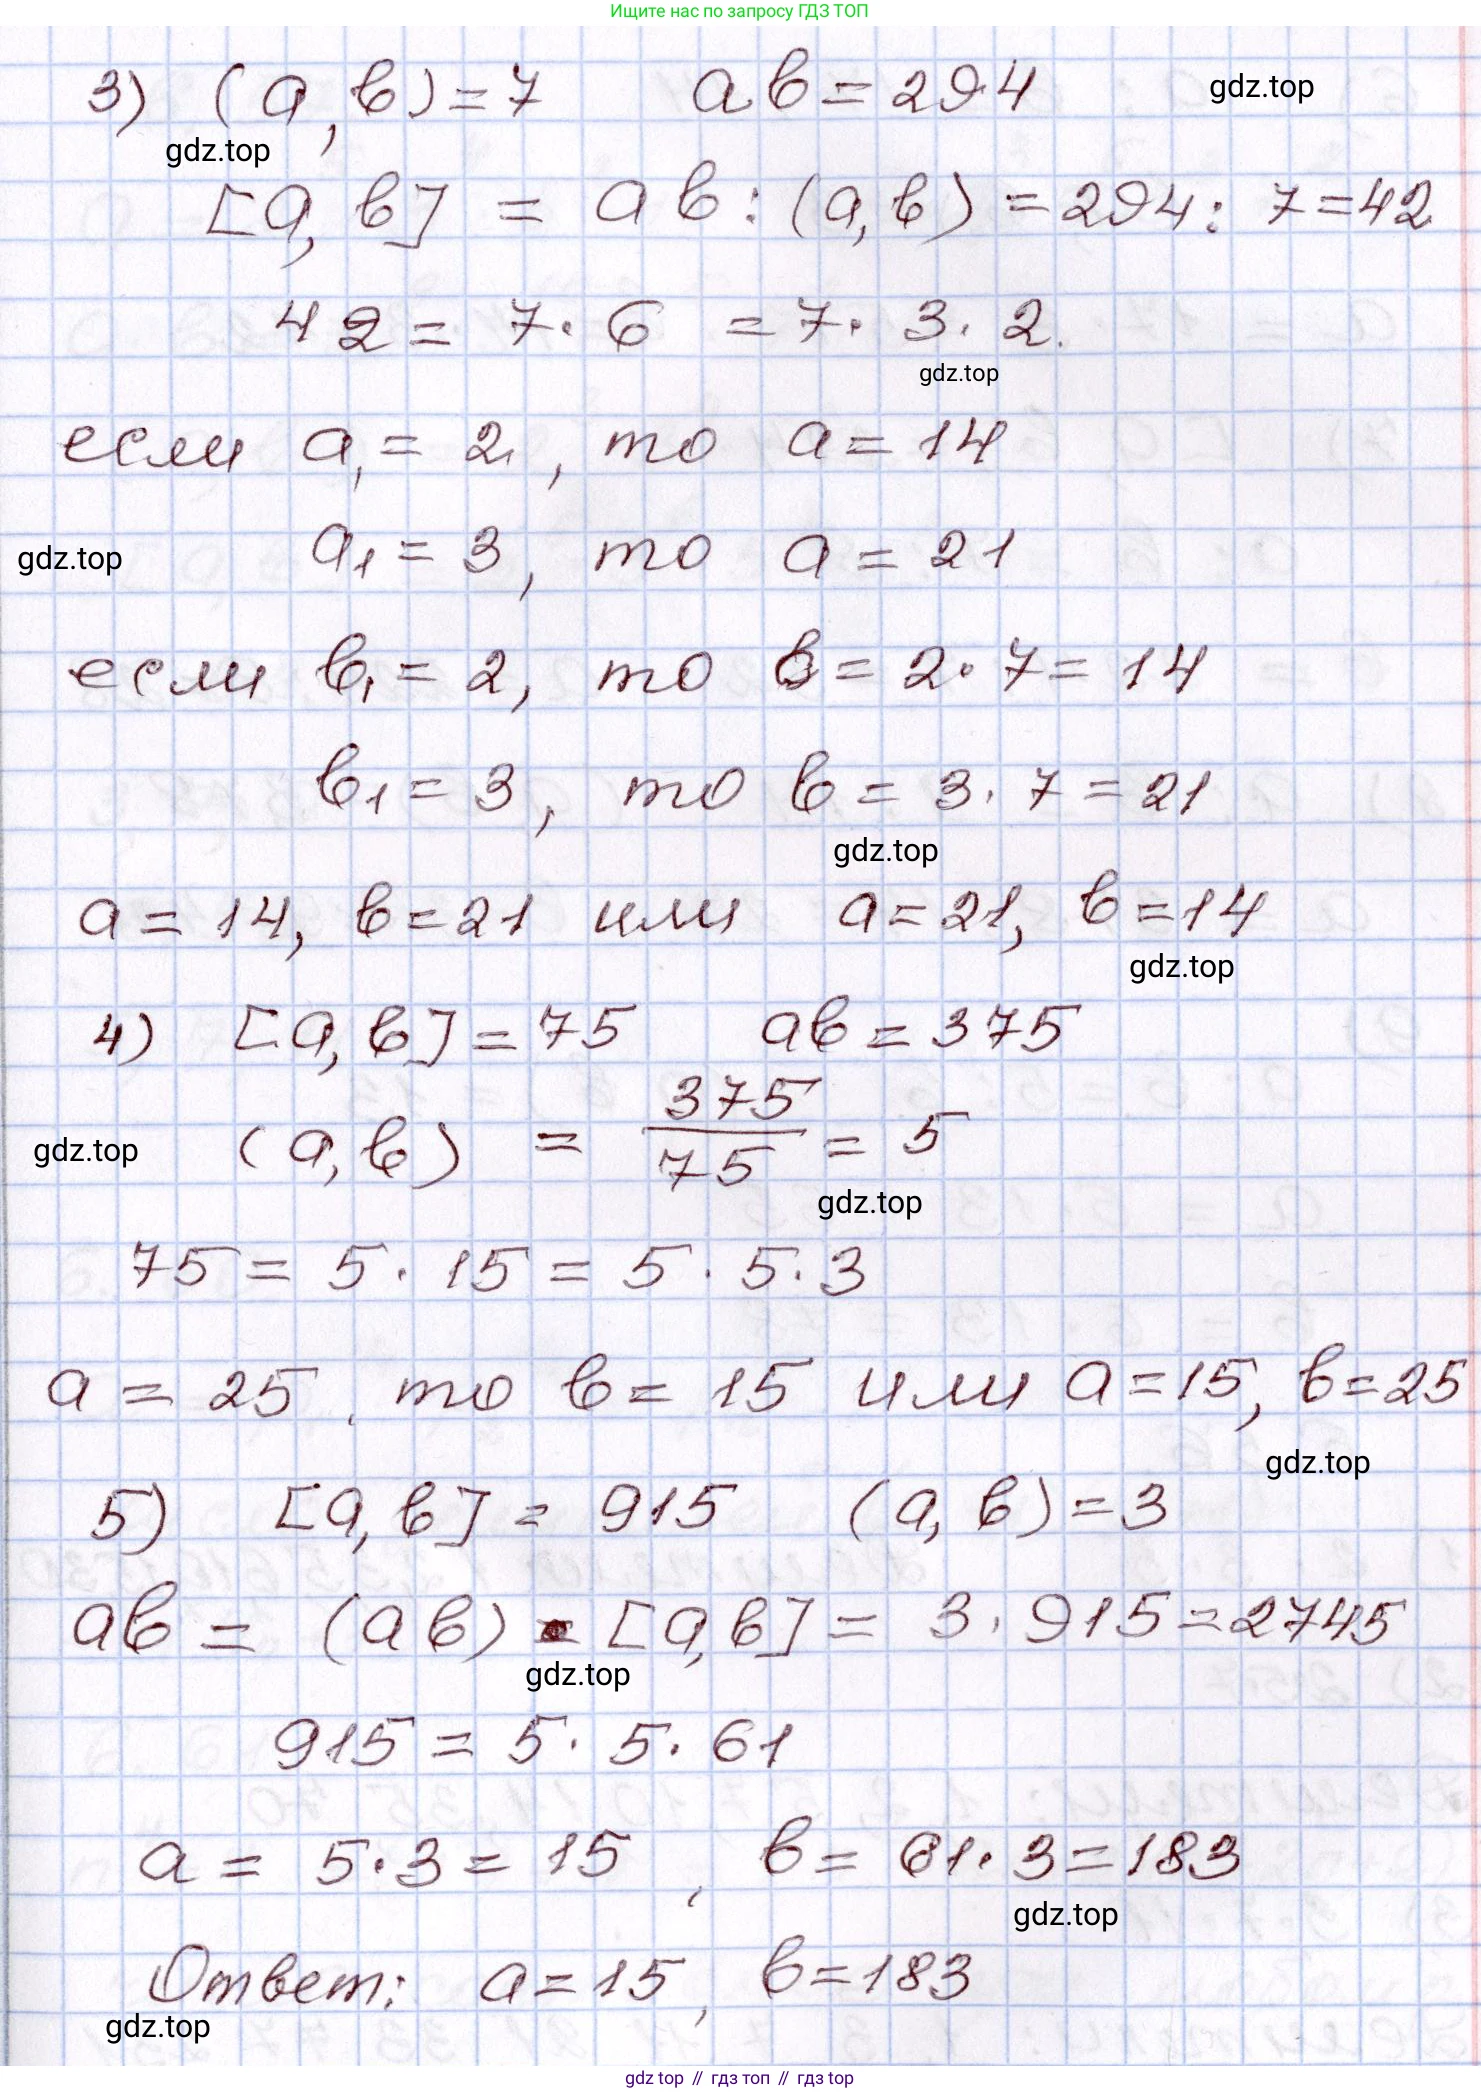 Ищите нас по запросу ГДЗ ТОП
3) (a, b) = 7 ab = 294 gdz.top
gdz.top
[a, b] = ab : (a, b) = 294 : 7 = 42
42 = 7 · 6 = 7 · 3 · 2.
gdz.top
если a₁ = 2, то a = 14
gdz.top a₁ = 3, то a = 21
если b₁ = 2, то b = 2 · 7 = 14
b₁ = 3, то b = 3 · 7 = 21
gdz.top
a = 14, b = 21 или a = 21, b = 14
gdz.top
4) [a, b] = 75 ab = 375
gdz.top (a, b) = 375/75 = 5
gdz.top
75 = 5 · 15 = 5 · 5 · 3
a = 25, то b = 15 или a = 15, b = 25
gdz.top
5) [a, b] = 915 (a, b) = 3
ab = (ab) · [a, b] = 3 · 915 = 2745
gdz.top
915 = 5 · 5 · 61
a = 5 · 3 = 15, b = 61 · 3 = 183
gdz.top
Ответ: a = 15, b = 183
gdz.top
gdz top // гдз топ // гдз top